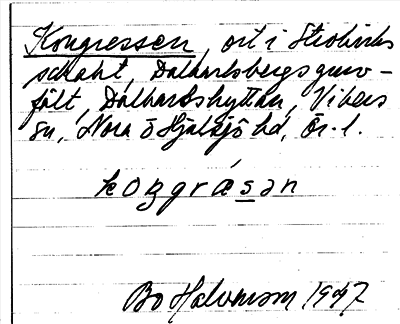 Kongressen, ort i Stiolwecks
schakt, Dalkarlsbergs gruv-
fält, Dalkarlshyttan, Vikers
sn, Nora o Hjulsjö hd, Ör. l.
koŋgräsən
Bo Halvarson 1947